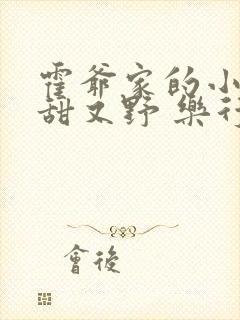 霍爺家的小
甜又野 樂行
會後